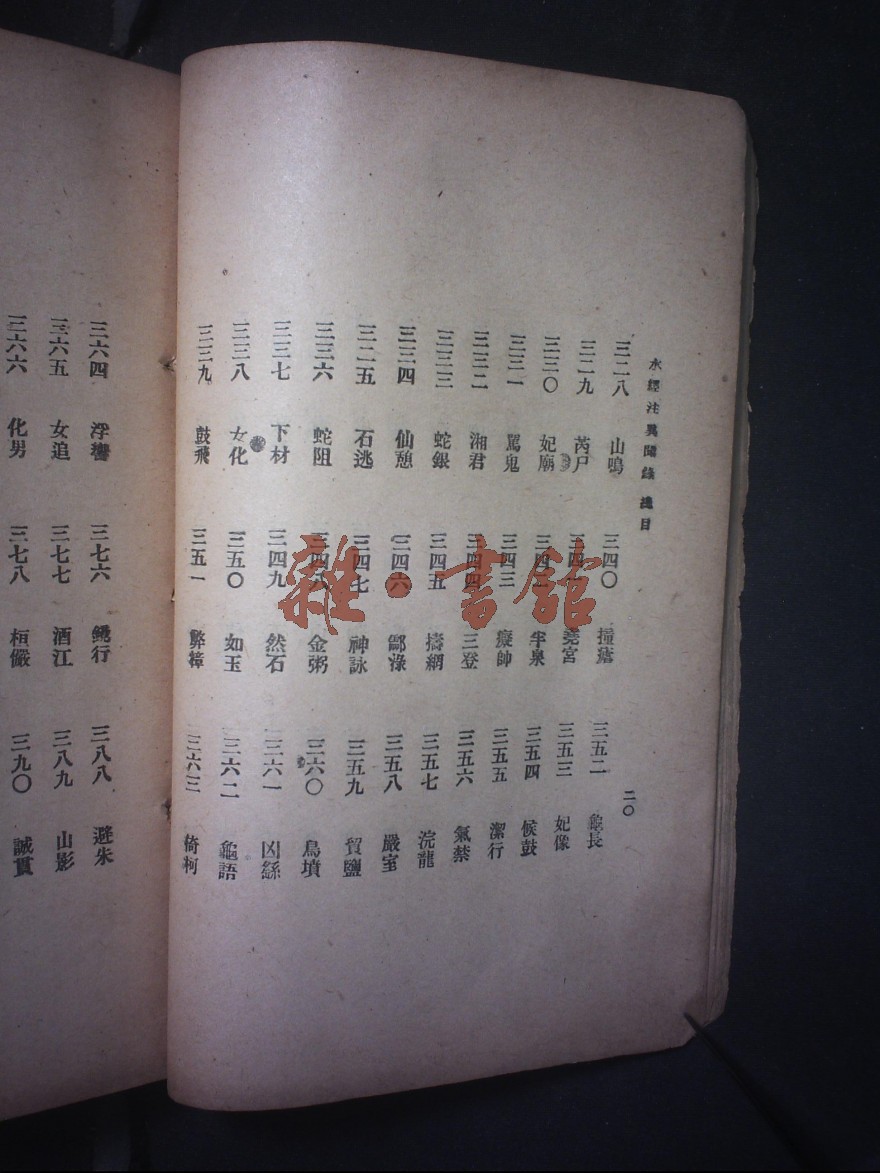 水經注異聞錄 總目
二〇
三二八 山鳴
三二九 芮尸
三三〇 妃廟
三三一 罵鬼
三三二 湘君
三三三 蛇銀
三三四 仙憩
三三五 石逃
三三六 蛇阻
三三七 下材
三三八 女化
三三九 鼓飛
三四〇 撞瘡
三四一 堯宮
三四二 半泉
三四三 癈帥
三四四 三登
三四五 擣網
三四六 酃淥
三四七 神詠
三四八 金粥
三四九 然石
三五〇 如玉
三五一 弊樟
三五二 龜長
三五三 妃像
三五四 候鼓
三五五 潔行
三五六 氣禁
三五七 浣龍
三五八 嚴室
三五九 貿鹽
三六〇 鳥墳
三六一 凶繇
三六二 龜語
三六三 倚柯
三六四 浮罌
三六五 女追
三六六 化男
三七六 鐃行
三七七 酒江
三七八 桓儼
三八八 避朱
三八九 山影
三九〇 誠貫
雜·書館